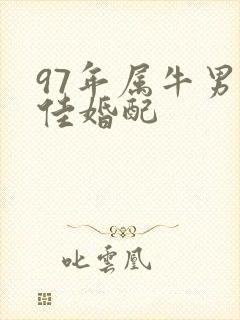 97年属牛男
佳婚配
叱雲凰